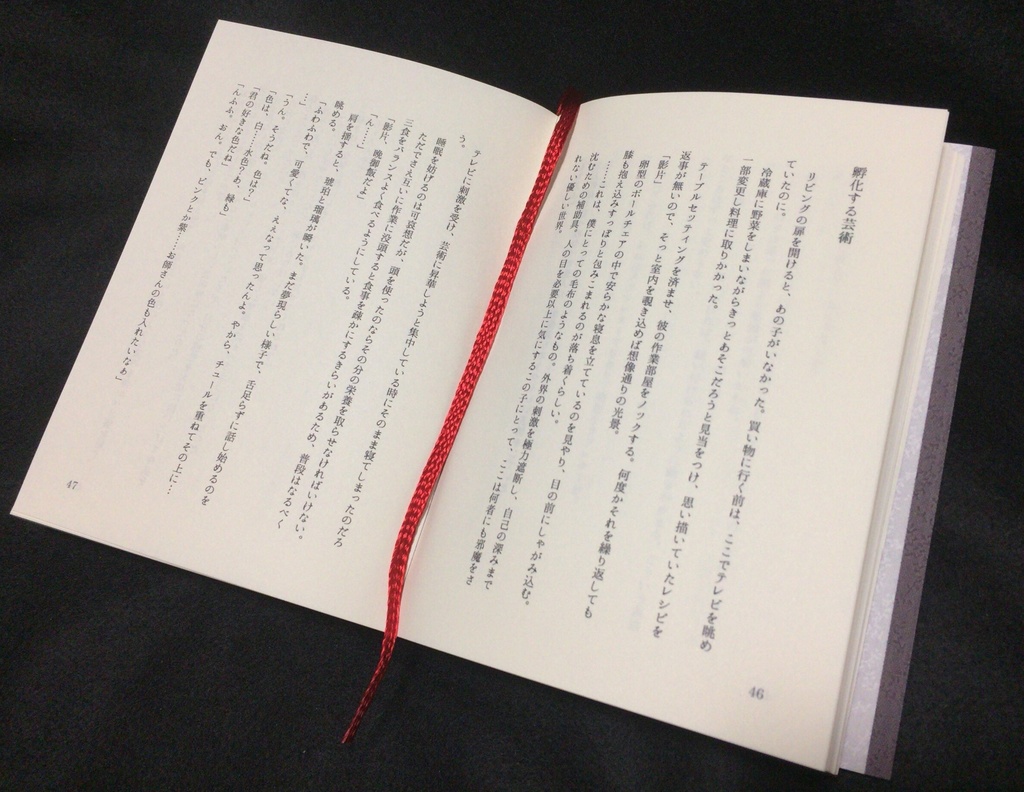 孵化する芸術
リビングの扉を開けると、あの子がいなかった。買い物に行く前は、ここでテレビを眺め
ていたのに。
冷蔵庫に野菜をしまいながらきっとあそこだろうと見当をつけ、思い描いていたレシピを
一部変更し料理に取りかかった。
テーブルセッティングを済ませ、彼の作業部屋をノックする。何度かそれを繰り返しても
返事が無いので、そっと室内を覗き込めば想像通りの光景。
「影片」
卵型のボールチェアの中で安らかな寝息を立てているのを見やり、目の前にしゃがみ込む。
膝も抱え込みすっぽりと包みこまれるのが落ち着くらしい。
……これは、僕にとっての毛布のようなもの。外界の刺激を極力遮断し、自己の深みまで
沈むための補助具。人の目を必要以上に気にするこの子にとって、ここは何者にも邪魔をさ
れない優しい世界。
46
テレビに刺激を受け、芸術に昇華しようと集中している時にそのまま寝てしまったのだろ
う。
睡眠を妨げるのは可哀想だが、頭を使ったのならその分の栄養を取らせなければいけない。
ただでさえ互いに作業に没頭すると食事を疎かにするきらいがあるため、普段はなるべく
三食をバランスよく食べるようにしている。
「影片、晩御飯だよ」
「ん……」
肩を揺すると、琥珀と瑠璃が瞬いた。まだ夢現らしい様子で、舌足らずに話し始めるのを
眺める。
「ふわふわで、可愛くてな、ええなって思ったんよ。やから、チュールを重ねてその上に…
…」
「うん。そうだね。色は？」
「色は、白……水色？あ、緑も」
「君の好きな色だね」
「んふふ。おん。でも、ピンクとか紫……お師さんの色も入れたいなぁ」
47